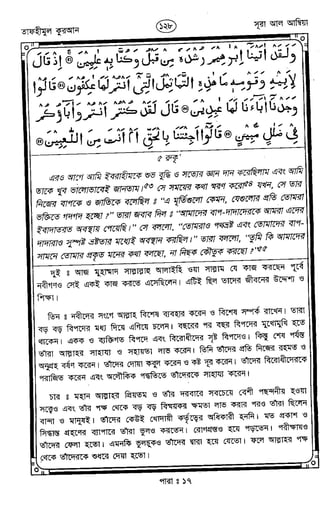 তাফহীমুল কুরআন
১২৮
সূরা আল আম্বিয়া
وَلَقَدْ آتَيْنَا إِبْرَاهِيمَ رُشْدَهُ مِنْ قَبْلُ وَكُنَّا بِهِ عَٰلِمِينَ ۝ إِذْ قَالَ
لِأَبِيهِ وَقَوْمِهِ مَا هَٰذِهِ التَّمَاثِيلُ الَّتِي أَنْتُمْ لَهَا عَٰكِفُونَ ۝ قَالُوا
وَجَدْنَا آبَاءَنَا لَهَا عَٰبِدِينَ ۝ قَالَ لَقَدْ كُنْتُمْ أَنْتُمْ وَآبَاؤُكُمْ
فِي ضَلَٰلٍ مُبِينٍ ۝ قَالُوا أَجِئْتَنَا بِالْحَقِّ أَمْ أَنْتَ مِنَ اللَّٰعِبِينَ ۝
৫ রুকূ'
এরও আগে আমি ইবরাহীমকে শুভ বুদ্ধি ও সত্যের জ্ঞান দান করেছিলাম এবং আমি
তাকে খুব ভালোভাবেই জানতাম।৫৩ সে সময়ের কথা স্মরণ করো৫৪ যখন, সে তার
নিজের বাপকে ও জাতিকে বলেছিল ঃ "এ মূর্তিগুলো কেমন, যেগুলোর প্রতি তোমরা
ভক্তিতে গদগদ হচ্ছো?" তারা জবাব দিল ঃ "আমাদের বাপ-দাদাদেরকে আমরা এদের
ইবাদাতরত অবস্থায় পেয়েছি।" সে বললো, "তোমরাও পথভ্রষ্ট এবং তোমাদের বাপ-
দাদারাও সুস্পষ্ট ভ্রষ্টতার মধ্যেই অবস্থান করছিল।" তারা বললো, "তুমি কি আমাদের
সামনে তোমার প্রকৃত মনের কথা বলছো, না নিছক কৌতুক করছো?"৫৫
দুই ঃ আজ মুহাম্মাদ সাল্লাল্লাহু আলাইহি ওয়া সাল্লাম যে কাজ করছেন পূর্বে
নবীগণও সেই একই কাজ করতে এসেছিলেন। এটিই ছিল তাদের জীবনের উদ্দেশ্য ও
শিক্ষা।
তিন ঃ নবীদের সংগে আল্লাহ বিশেষ ব্যবহার করেন ও বিশেষ সম্পর্ক রাখেন। তারা
বড় বড় বিপদের মধ্য দিয়ে এগিয়ে চলেন। বছরের পর বছর বিপদের মুখোমুখি হতে
থাকেন। একক ও ব্যক্তিগত বিপদে এবং বিরোধীদের সৃষ্ট বিপদেও। কিন্তু শেষ পর্যন্ত
তাঁরা আল্লাহর সাহায্য ও সহায়তা লাভ করেন। তিনি তাঁদের প্রতি নিজের রহমত ও
অনুগ্রহ বর্ষণ করেন। তাঁদের দোয়া কবুল করেন ও কষ্ট দূর করেন। তাঁদের বিরোধীদেরকে
পরাজিত করেন এবং অলৌকিক পদ্ধতিতে তাঁদেরকে সাহায্য করেন।
চার ঃ মহান আল্লাহর প্রিয়তম ও তাঁর দরবারে সবচেয়ে বেশী পছন্দনীয় হওয়া
সত্ত্বেও এবং তাঁর পক্ষ থেকে বড় বড় বিস্ময়কর ক্ষমতা লাভ করার পরও তাঁরা ছিলেন
বান্দা ও মানুষই। তাঁদের কেউই খোদায়ী কর্তৃত্বের অধিকারী হননি। মত প্রকাশ ও
সিদ্ধান্ত গ্রহণের ব্যাপারে তাঁরা ভুলও করতেন। রোগগ্রস্তও হয়ে পড়তেন। পরীক্ষায়ও
তাঁদের ফেলা হতো। এমনকি ভুলচুকও তাঁদের দ্বারা হয়ে যেতো। ফলে আল্লাহর পক্ষ
থেকে তাঁদেরকে শুধরে দেয়া হতো।
পারা ঃ ১৭